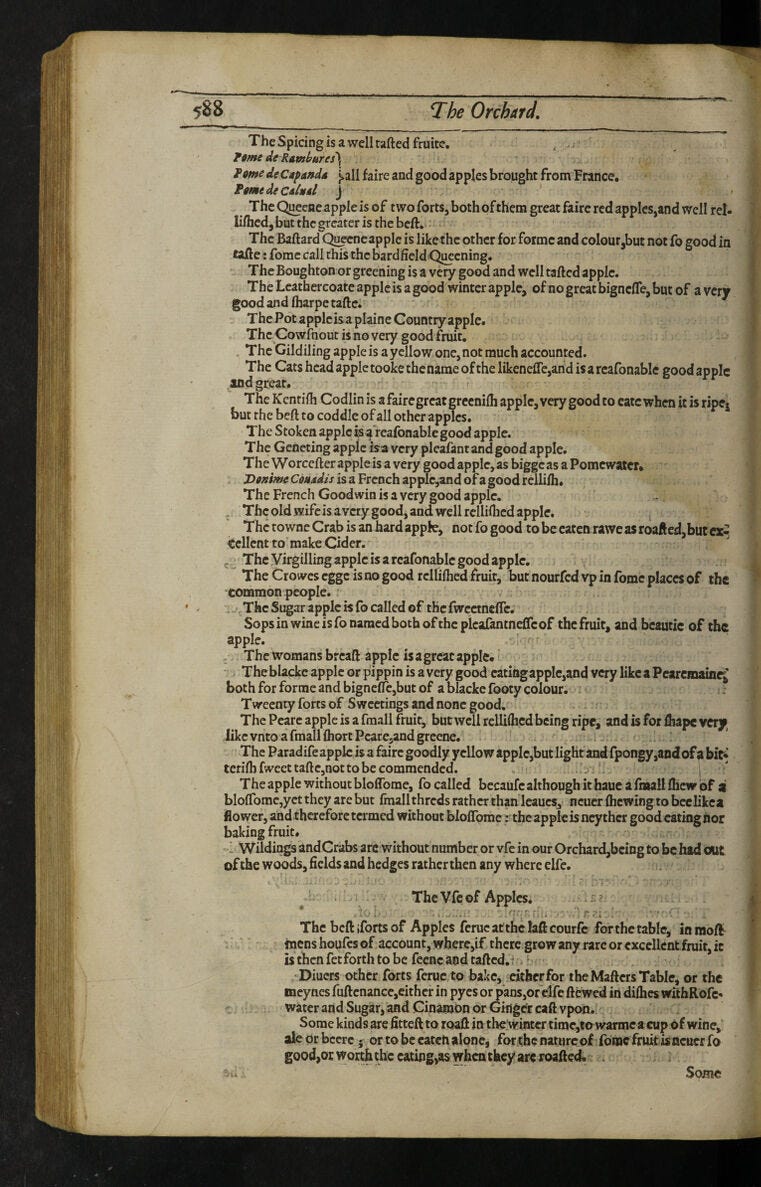 588 The Orchard.
The Spicing is a well taſted fruite.
Pome de Rambures }
Pome de Capanda } all faire and good apples brought from France.
Pome de Calual }
The Queene apple is of two ſorts, both of them great faire red apples, and well rel-
liſhed, but the greater is the beſt.
The Baſtard Queene apple is like the other for forme and colour, but not ſo good in
taſte : ſome call this the bardfield Queening.
The Boughton or greening is a very good and well taſted apple.
The Leathercoate apple is a good winter apple, of no great bigneſſe, but of a very
good and ſharpe taſte.
The Pot apple is a plaine Country apple.
The Cowſnout is no very good fruit.
The Gildiling apple is a yellow one, not much accounted.
The Cats head apple tooke the name of the likeneſſe, and is a reaſonable good apple
and great.
The Kentiſh Codlin is a faire great greeniſh apple, very good to eate when it is ripe;
but the beſt to coddle of all other apples.
The Stoken apple is a reaſonable good apple.
The Geneting apple is a very pleaſant and good apple.
The Worceſter apple is a very good apple, as bigge as a Pomewater.
Donime Couadis is a French apple, and of a good relliſh.
The French Goodwin is a very good apple.
The old wife is a very good, and well relliſhed apple.
The towne Crab is an hard apple, not ſo good to be eaten rawe as roaſted, but ex-
cellent to make Cider.
The Virgilling apple is a reaſonable good apple.
The Crowes egge is no good relliſhed fruit, but nourſed vp in ſome places of the
common people.
The Sugar apple is ſo called of the ſweetneſſe.
Sops in wine is ſo named both of the pleaſantneſſe of the fruit, and beautie of the
apple.
The womans breaſt apple is a great apple.
The blacke apple or pippin is a very good eating apple, and very like a Pearemaine,
both for forme and bigneſſe, but of a blacke ſooty colour.
Tweenty ſorts of Sweetings and none good.
The Peare apple is a ſmall fruit, but well relliſhed being ripe, and is for ſhape very
like vnto a ſmall ſhort Peare, and greene.
The Paradiſe apple is a faire goodly yellow apple, but light and ſpongy, and of a bit-
teriſh ſweet taſte, not to be commended.
The apple without bloſſome, ſo called becauſe although it haue a ſmall ſhew of a
bloſſome, yet they are but ſmall threds rather than leaues, neuer ſhewing to bee like a
flower, and therefore termed without bloſſome : the apple is neyther good eating nor
baking fruit.
Wildings and Crabs are without number or vſe in our Orchard, being to be had out
of the woods, fields and hedges rather then any where elſe.
The Vſe of Apples.
The beſt ſorts of Apples ſerue at the laſt courſe for the table, in moſt
mens houſes of account, where, if there grow any rare or excellent fruit, it
is then ſet forth to be ſeene and taſted.
Diuers other ſorts ſerue to bake, either for the Maſters Table, or the
meynes ſuſtenance, either in pyes or pans, or elſe ſtewed in diſhes with Roſe-
water and Sugar, and Cinamon or Ginger caſt vpon.
Some kinds are fitteſt to roaſt in the winter time, to warme a cup of wine,
ale or beere ; or to be eaten alone, for the nature of ſome fruit is neuer ſo
good, or worth the eating, as when they are roaſted.
Some